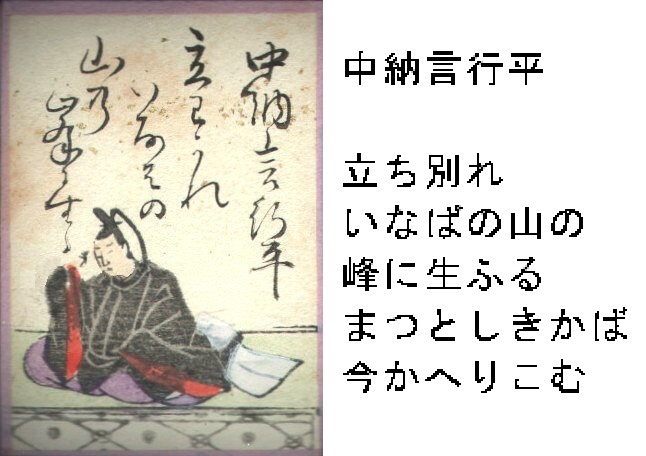 中納言行平
立わかれ
いなはの
山乃
中納言行平
立ち別れ
いなばの山の
峰に生ふる
まつとしきかば
今かへりこむ